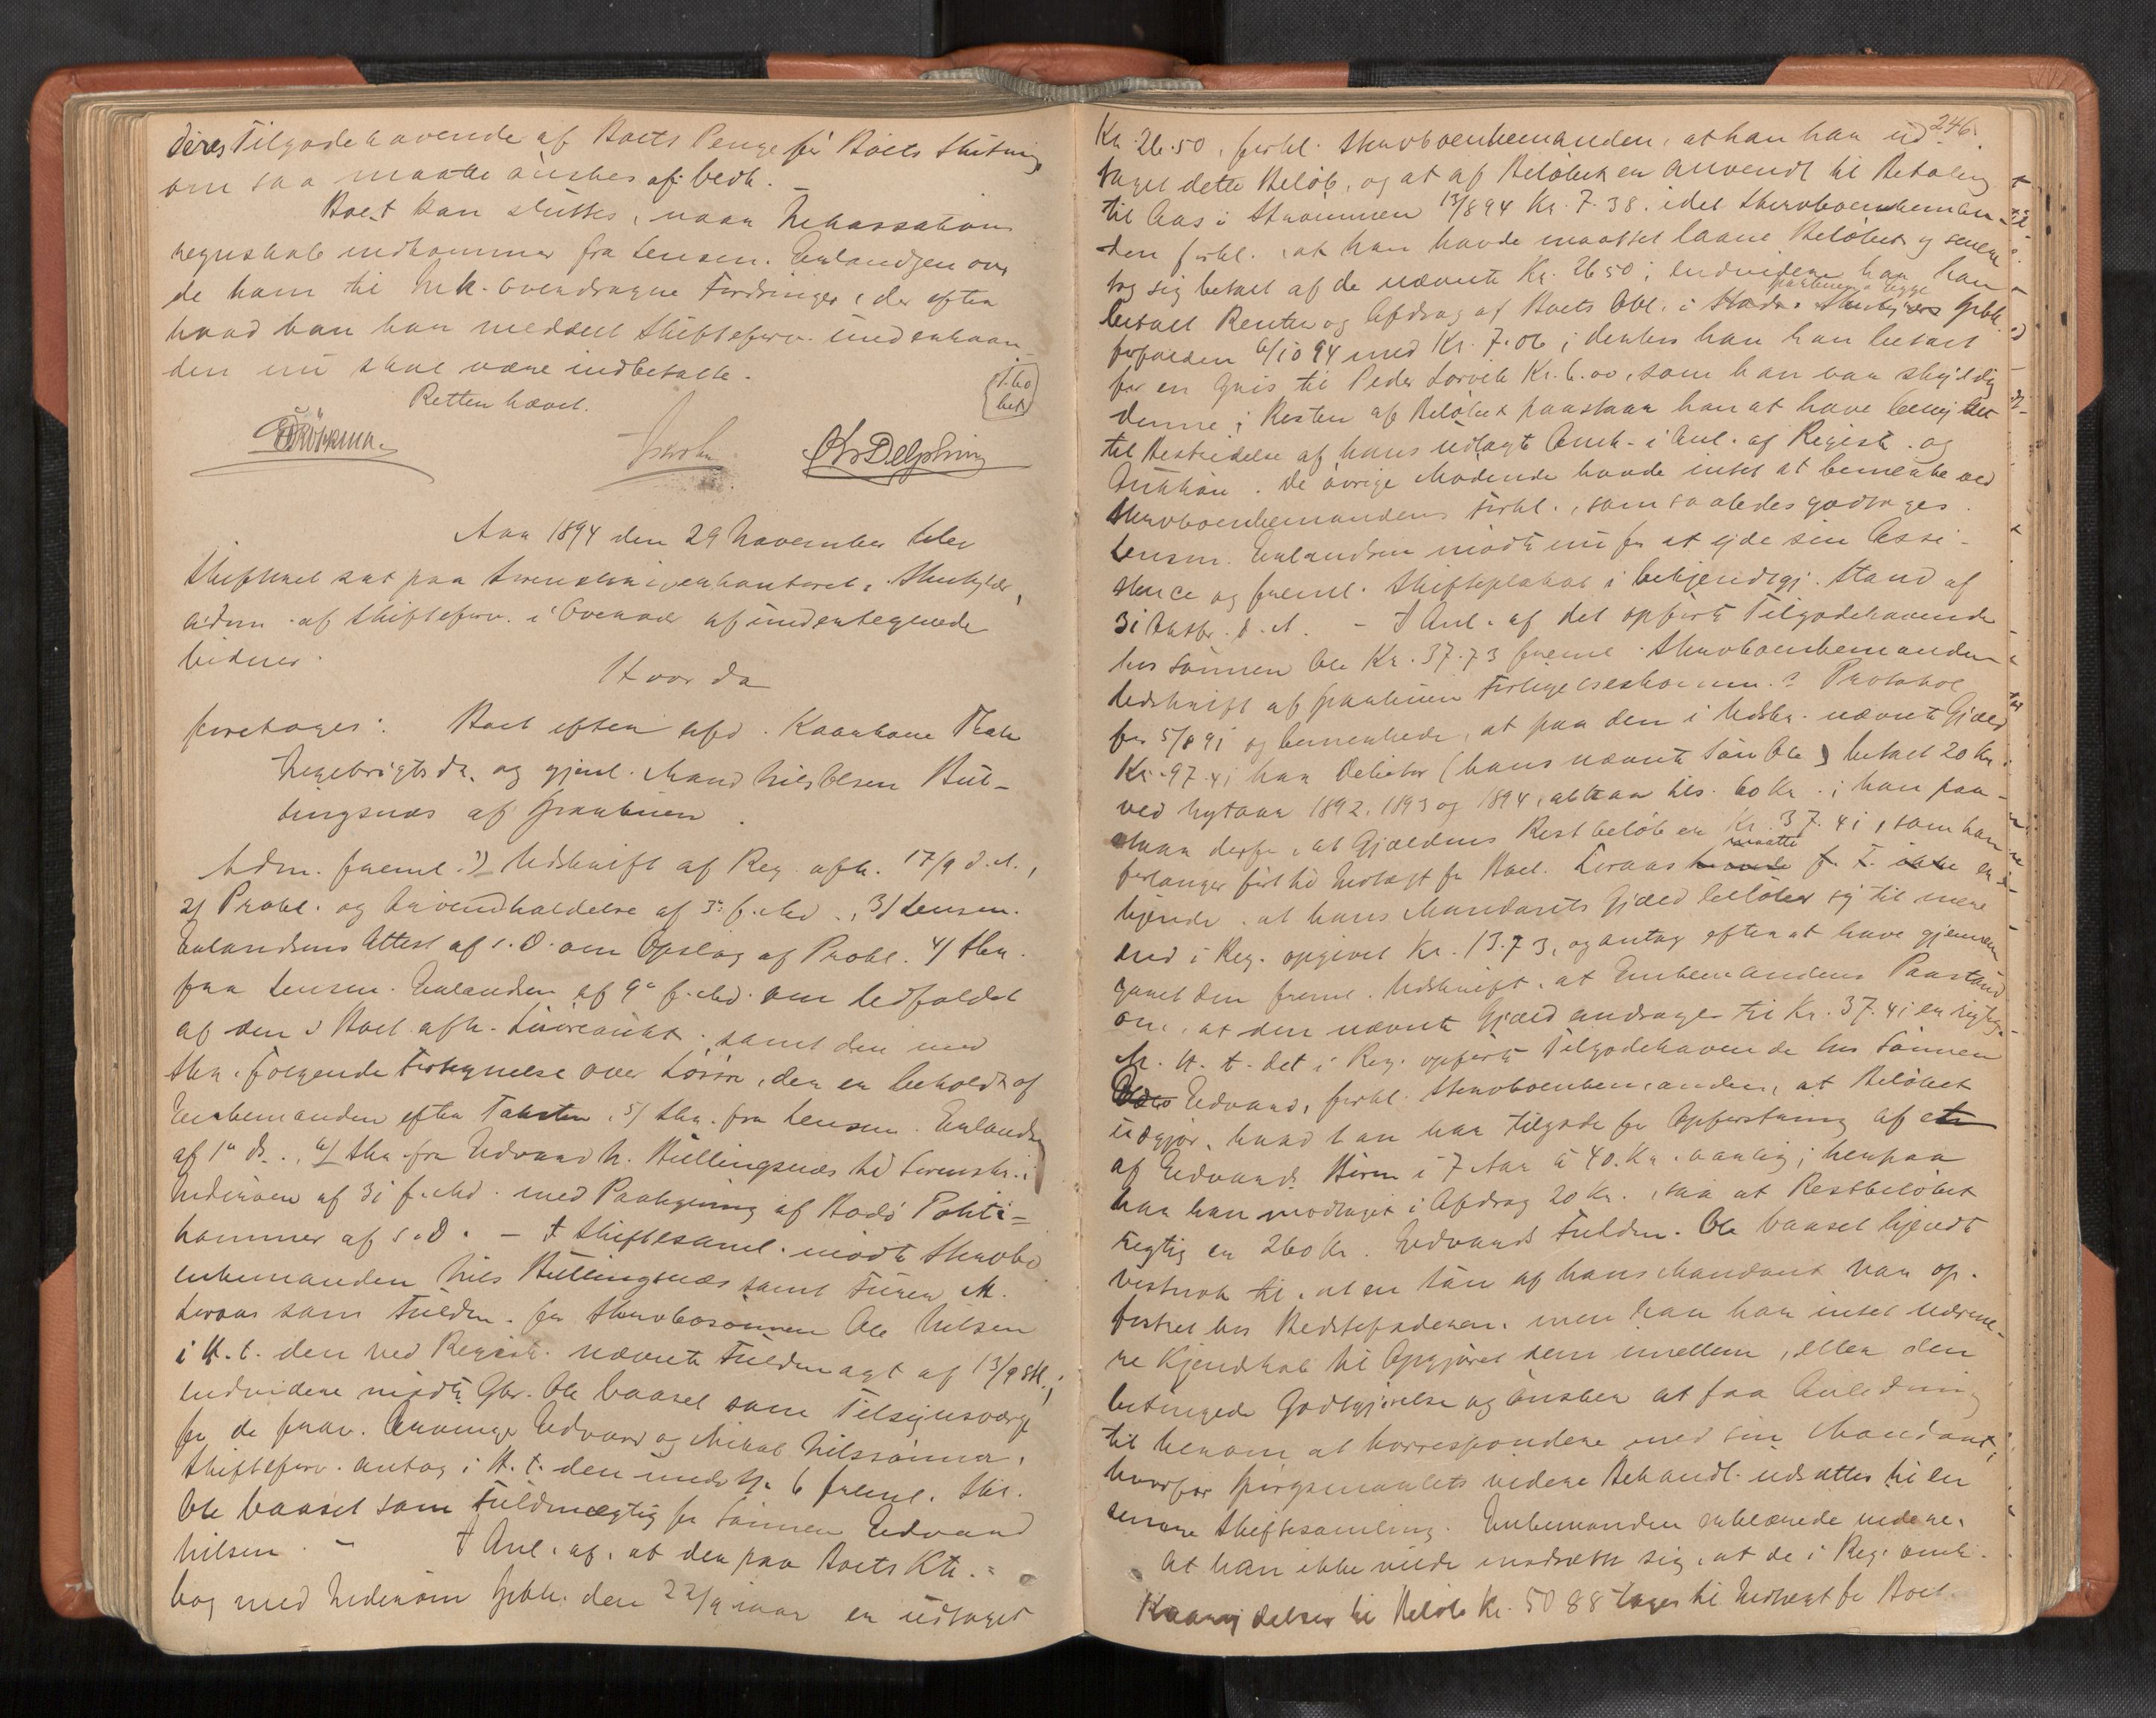 deres Tilgodehavende af Boets Penge før Boets Slutning
om saa maatte ønskes af vedk. –
Boet kan sluttes, naar Inkassations
regnskab indkommer fra Lensm. Erlandsen over
de ham til Ink. overdragne Fordringer, der efter
hvad han har meddelt Skifteforv. underhaan
den nu skal være indbetalte.
Retten hævet.
1.60
bet.
Kr Delphin
Aar 1894 den 29 November blev
Skifteret sat paa Sorenskriverkontoret,
adm. af Skifteforv. i Overvær af undertegnede
Vidner.
Hvor da
foretages: Boet efter afd. Kaarkone
Ingebrigtsdr. og gjenl. Mand Nils Olsen Bül-
lingsnæs af Graabrüen.
Adm. freml. 1) Udskrift af Reg. afh. 17/9 d. A.,
2) Prokl. og Indvendholdelse af 3. f. Md., 3) Lensm.
Erlandsens Attest af s. D. om Opslag af Prokl. 4) Skr.
fra Lensm. Erlandsen af 9. f. Md. om Udfaldet
af den i Boet afh. Løsøreaukt. samt den med
Skr. følgende Fortegnelse over Løsøre, der er beholdt af
Enkemanden efter Taksten, 5) Skr. fra Lensm. Erlandsen
af 1. ds., 6) Skr. fra Edvard N. Büllingsnæs til Sorenskr. i
Inderøen af 31 f. Md. med Paategning af Bodø Politi=
kammer af s. D. – I Skiftesaml. mødte Skævbo
enkemanden Nils Büllingsnæs samt M.
Lioraas som Fuldm. for Skævbosønnen Ole Nilsen
i H. t. den ved Registr. nævnte Fuldmagt af 13/9
endvidere mødte Gbr. Ole Vaaset som Tilsynsværge
for de frav. Arvinge Edvard og Mikal Nilssønner.
Skifteforv. antog i H. t. den under Nr. 6 freml. Skr.
Ole Vaaset som Fuldmægtig for Sønnen Edvard
Nilsen. – I Anl. af, at der paa Boets Ktr.=
bog med Inderøens Sprbk. den 22/9 iaar er udtaget
246.
Kr. 26.50, forkl. Skævboenkemanden, at han har ud-
taget dette Beløb, og at af Beløbet er anvendt til Betaling
til Aas i Strømmen 13/8 94 Kr. 7.38, idet Skævboenkeman-
den forkl., at han havde maattet laane Beløbet og senere
tog sig betalt af de nævnte Kr. 26.50; endvidere har han
betalt Renter og Afdrag af Boets Obl. i Sprbk.
forfalden 6/10 94 med Kr. 7.06; desten har han betalt
for en Gris til Peder Lorvik Kr. 6.00, som han var skyldig
denne; Resten af Beløbet paastaar han at have benyttet
til Bestridelse af hans udlagte Omk. i Anl. af Registr. og
Auktion. De øvrige Mødende havde intet at bemerke ved
Skævboenkemandens Forkl., som saaledes godtages.
Lensm. Erlandsen mødte nu for at yde sin Assi-
stence og freml. Skifteplakat i bekjendtgj. Stand af
31 Oktbr. d. A. – I Anl. af det opførte Tilgodehavende
hos Sønnen Ole Kr. 37.73 freml. Skævboenkemanden
Udskrift af Forligelseskomm.s Protokol
for 5/8 91 og bemerkede, at paa den i Udskr. nævnte Gjæld
Kr. 97.41 har Debitor (hans nævnte Søn Ole) betalt 20 Kr.
ved Nytaar 1892, 1893 og 1894, altsaa tils. 60 Kr.; han paa-
staar derfor, at Gjældens Restbeløb er Kr. 37.41, som han
forlanger først til Indtægt for Boet. Lioraas maatte er-
kjende, at hans Mandants Gjæld beløber sig til mere
end i Reg. opgivet Kr. 13.73, og antog efter at have gjennem
gaaet den freml. Udskrift, at Enkemandens Paastand
om, at den nævnte Gjæld andrager til Kr. 37.41 er rigtig.
M. H. t. det i Reg. opførte Tilgodehavende hos Sønnen
Edvard, forkl. Skævboenkemanden, at Beløbet
udgjør, hvad han har tilgode for Opfostring af
af Edvards Børn i 7 Aar à 40. Kr. aarlig; herpaa
har han modtaget i Afdrag 20 Kr., saa at Restbeløbet
rigtig er 260 Kr. Edvards Fuldm. Ole Vaaset kjendte
vistnok til, at en Søn af hans Mandant var op-
fostret hos Bedstefaderen, men han har intet nærme-
re Kjendskab til Opgjøret dem imellem, eller den
betingede Godtgjørelse og ønsker at faa Anledning
til herom at korrespondere med sin Mandant,
hvorfor Spørgsmaalets videre Behandl. udsattes til en
senere Skiftesamling. Enkemanden erklærede videre,
at han ikke vilde modsætte sig, at de i Reg. omh.
Kaarydelser til Beløb Kr. 50 88 tages til Indtægt for Boet.